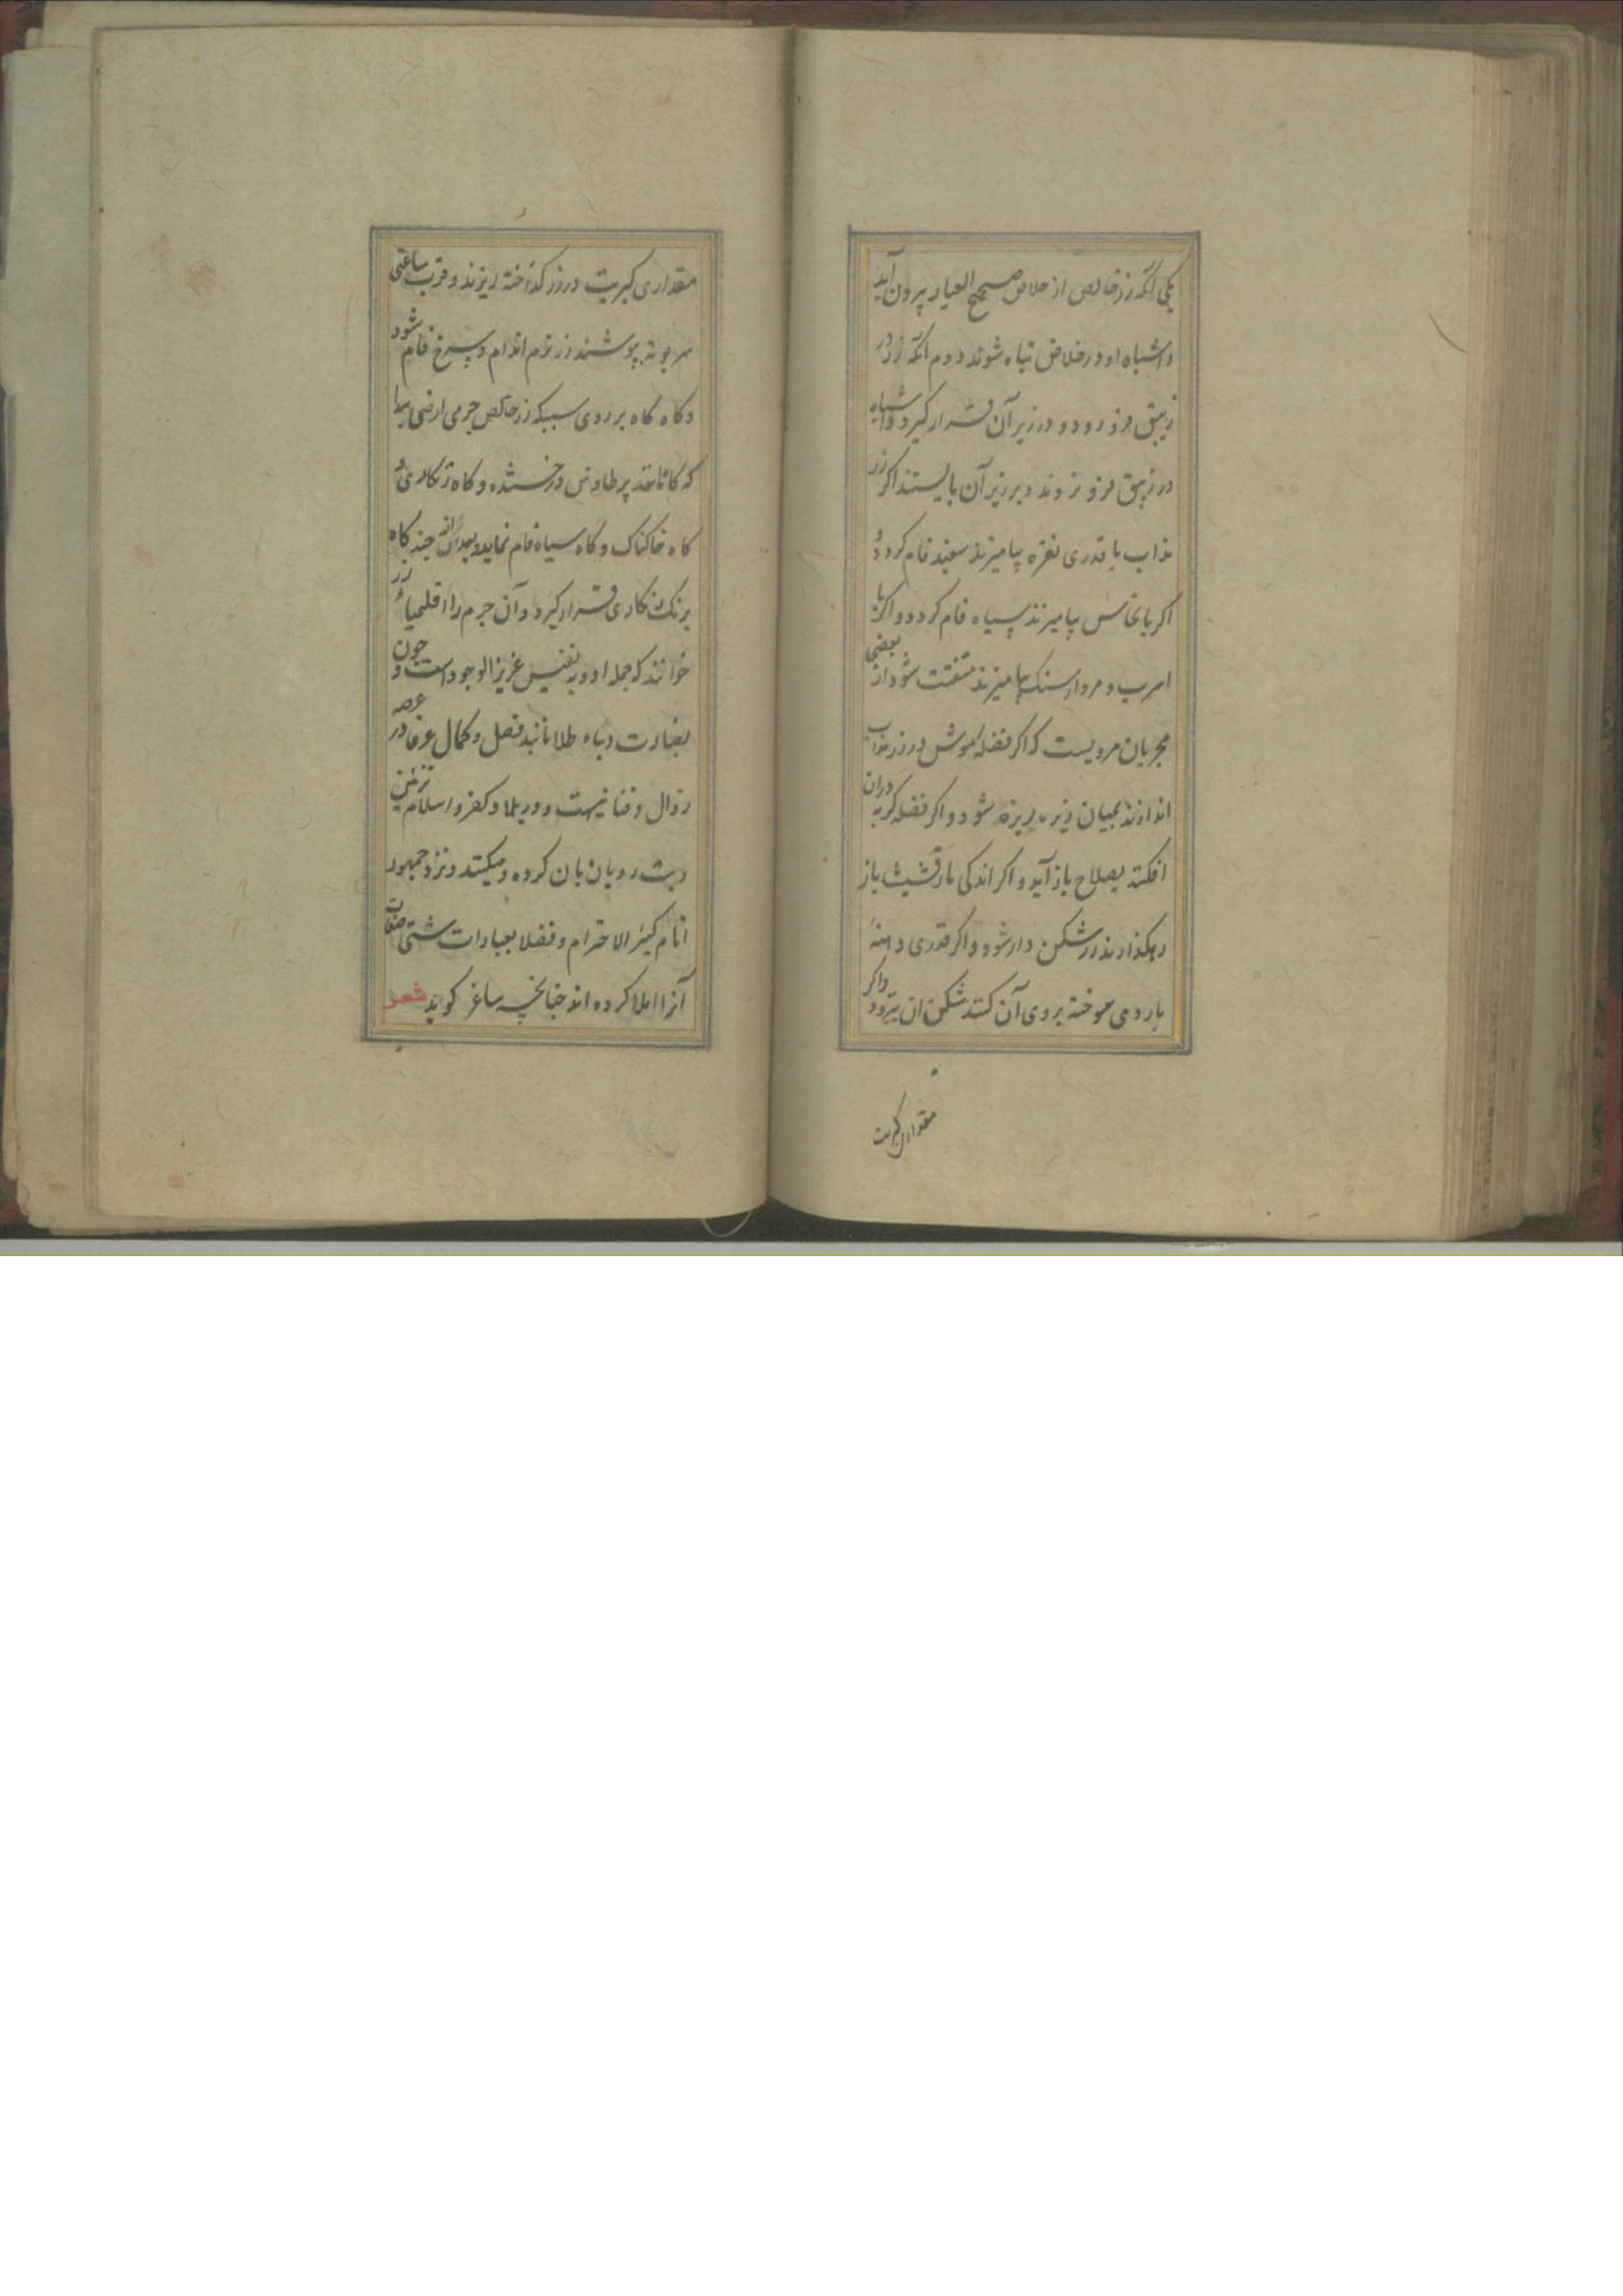 یکی آنکه زر خالص از خلاص صحیح العیار بیرون آید
و اشباه او در خلاص تباه شوند دوم آنکه زر در
زیبق فرو رود و در زیر آن قرار گیرد و اشباه
در زیبق فرو نروند و بر زبر آن بایستند اگر زر
مذاب با قدری نقره بیامیزند سفید فام کردد و
اکر با نحاس بیامیزند سیاه فام کردد و اکر با
اسرب و مردارسنک بیامیزند متفتت شود از بعضی
مجربان مرویست که اکر فضله موش در زر مذاب
اندازند بمیان ریزه ریزه شود و اکر فضله کربه دران
افکنند بصلاح باز آید و اکر اندکی مارقشیثا باز
بکذارند زر شکن دار شود و اکر قدری دهنه
با رومی سوخته بروی آن کنند شکن ان ببرود و اکر
مقداری کبریت
مقداری کبریت در زر کداخته ریزند و قرب ساعتی
سر بوته بپوشند زر نرم اندام و سرخ فام شود
و کاه کاه بر روی سبیکه زر خالص جرمی ارضی پیدا
که کاه مانند پر طاوس درخشنده و کاه زنکاری و
کاه خاکناک و کاه سیاه فام نماید و بعد از آن چند کاه
برنک زنکاری قرار کیرد و آن جرم را اقلیمیا زر
خوانند که جمله ادویه نفیس عزیز الوجود است و چون
نضارت و بهاء طلا مانند فضل و کمال عرفا در عرصه
زوال و فنا نیست و در بلاد کفر و اسلام تزئین
و بت رویان بان کرده و میکنند و نزد جمهور
انام کثیر الاحترام و فضلا بعبارات شتی صفات
آنرا املا کرده اند چنانچه ساغر کوید شعر